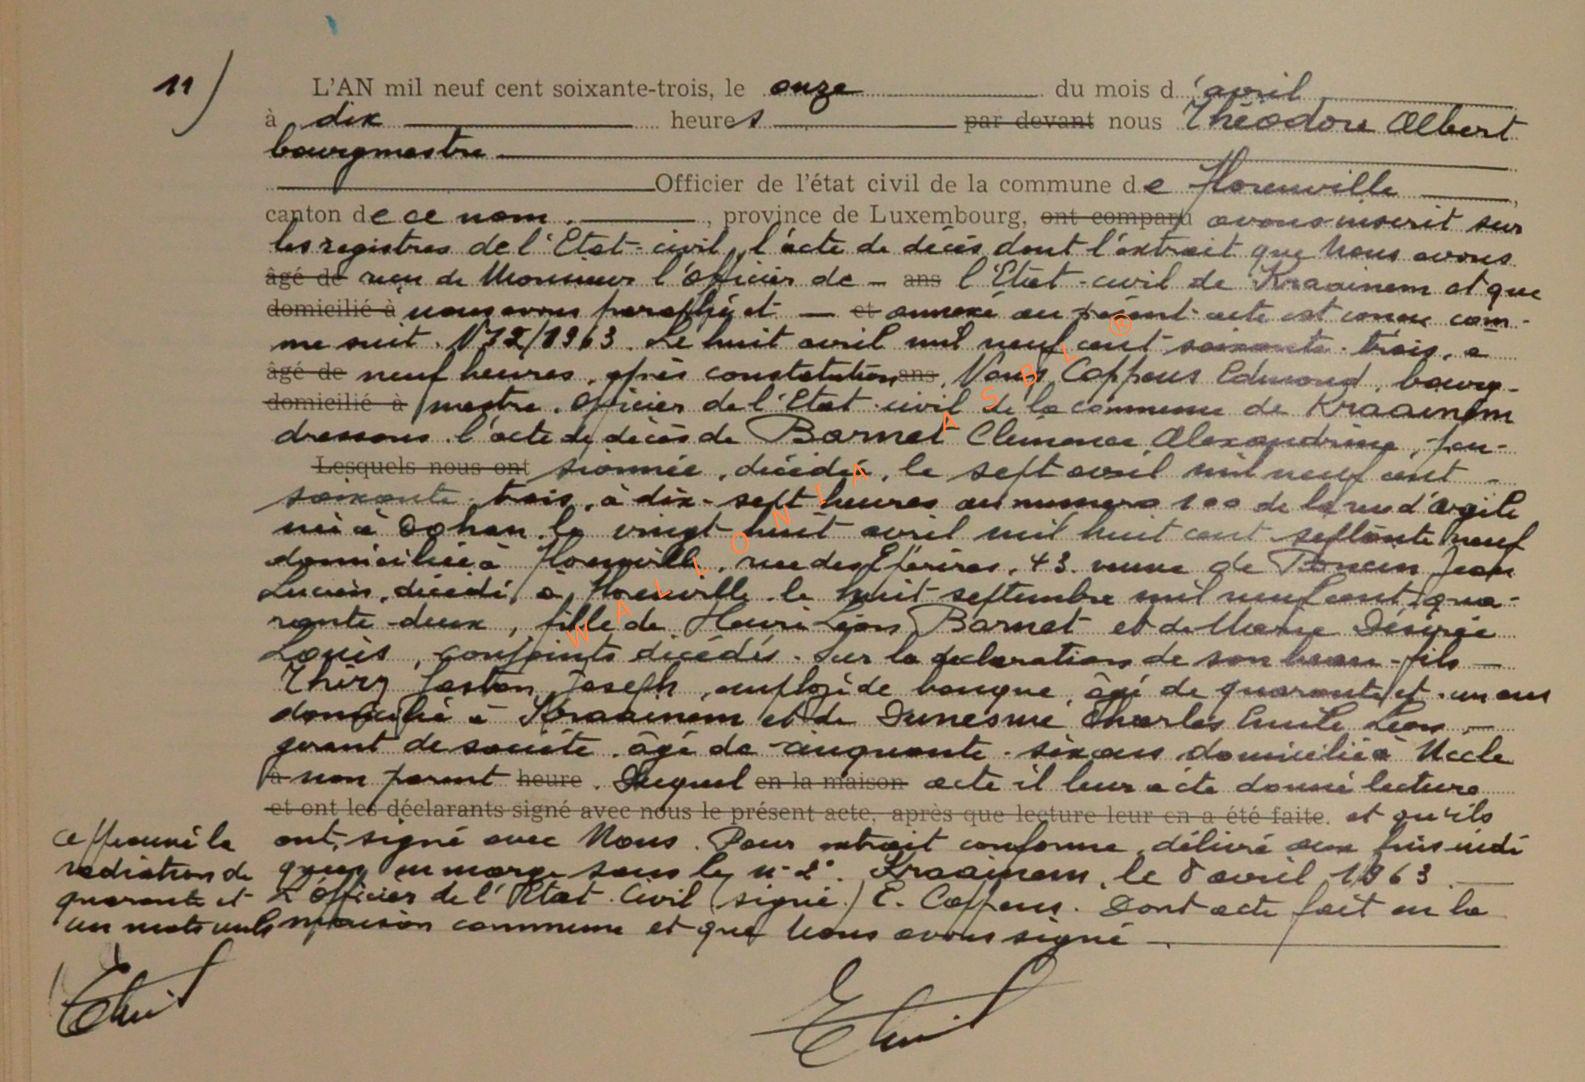 11)
L'AN mil neuf cent soixante-trois, le onze du mois d'avril
à dix heures par devant nous Théodore Albert
bourgmestre
Officier de l'état civil de la commune de Florenville
canton de ce nom, province de Luxembourg, ont comparu avons inscrit sur
les registres de l'Etat-civil, l'acte de décès dont l'extrait que Nous avons
âgé de reçu de Monsieur l'officier de - ans l'Etat-civil de Kraainem et que
domicilié à nous avons paraphé et - et annexé au présent acte est conçu com-
me suit. N°72/1963. Le huit avril mil neuf cent soixante-trois, à
âgé de neuf heures, après constatation ans, Nous Coppens Edmond, bourg-
domicilié à mestre, Officier de l'Etat civil de la commune de Kraainem
dressons l'acte de décès de Barnet Clémence Alexandrine, pen-
Lesquels nous ont sionnée, décédée, le sept avril mil neuf cent
soixante-trois, à dix-sept heures au numero 100 de la rue d'argile
née à Dohan le vingt huit avril mil huit cent septante neuf
domiciliée à Florenville, rue des Epérires, 43 veuve de Poncin Jean
Lucien, décédé à Florenville le huit septembre mil neuf cent qua-
rante-deux, fille de Henri Léon Barnet et de Marie Désirée
Louis, conjoints décédés. Sur la déclarations de son beau-fils
Thiry Gaston Joseph, employé de banque, âgé de quarante et un ans
domicilié à Kraainem et de Dunesme Charles Emile Léon
gérant de société, âgé de cinquante-six ans domicilié à Uccle
à non parent heure. Duquel en la maison acte il leur a été donné lecture
et ont les déclarants signé avec nous le présent acte, après que lecture leur en a été faite. et qu'ils
ont signé avec Nous. Pour extrait conforme, délivré aux fins indi
quées en marge sous le n° 2°. Kraainem, le 8 avril 1963
L'Officier de l'Etat Civil (signé) E. Coppens. Dont acte fait en la
maison commune et que Nous avons signé
Approuvé la
radiation de
quarante et
un mots nuls
WALLONIA ASBL ®